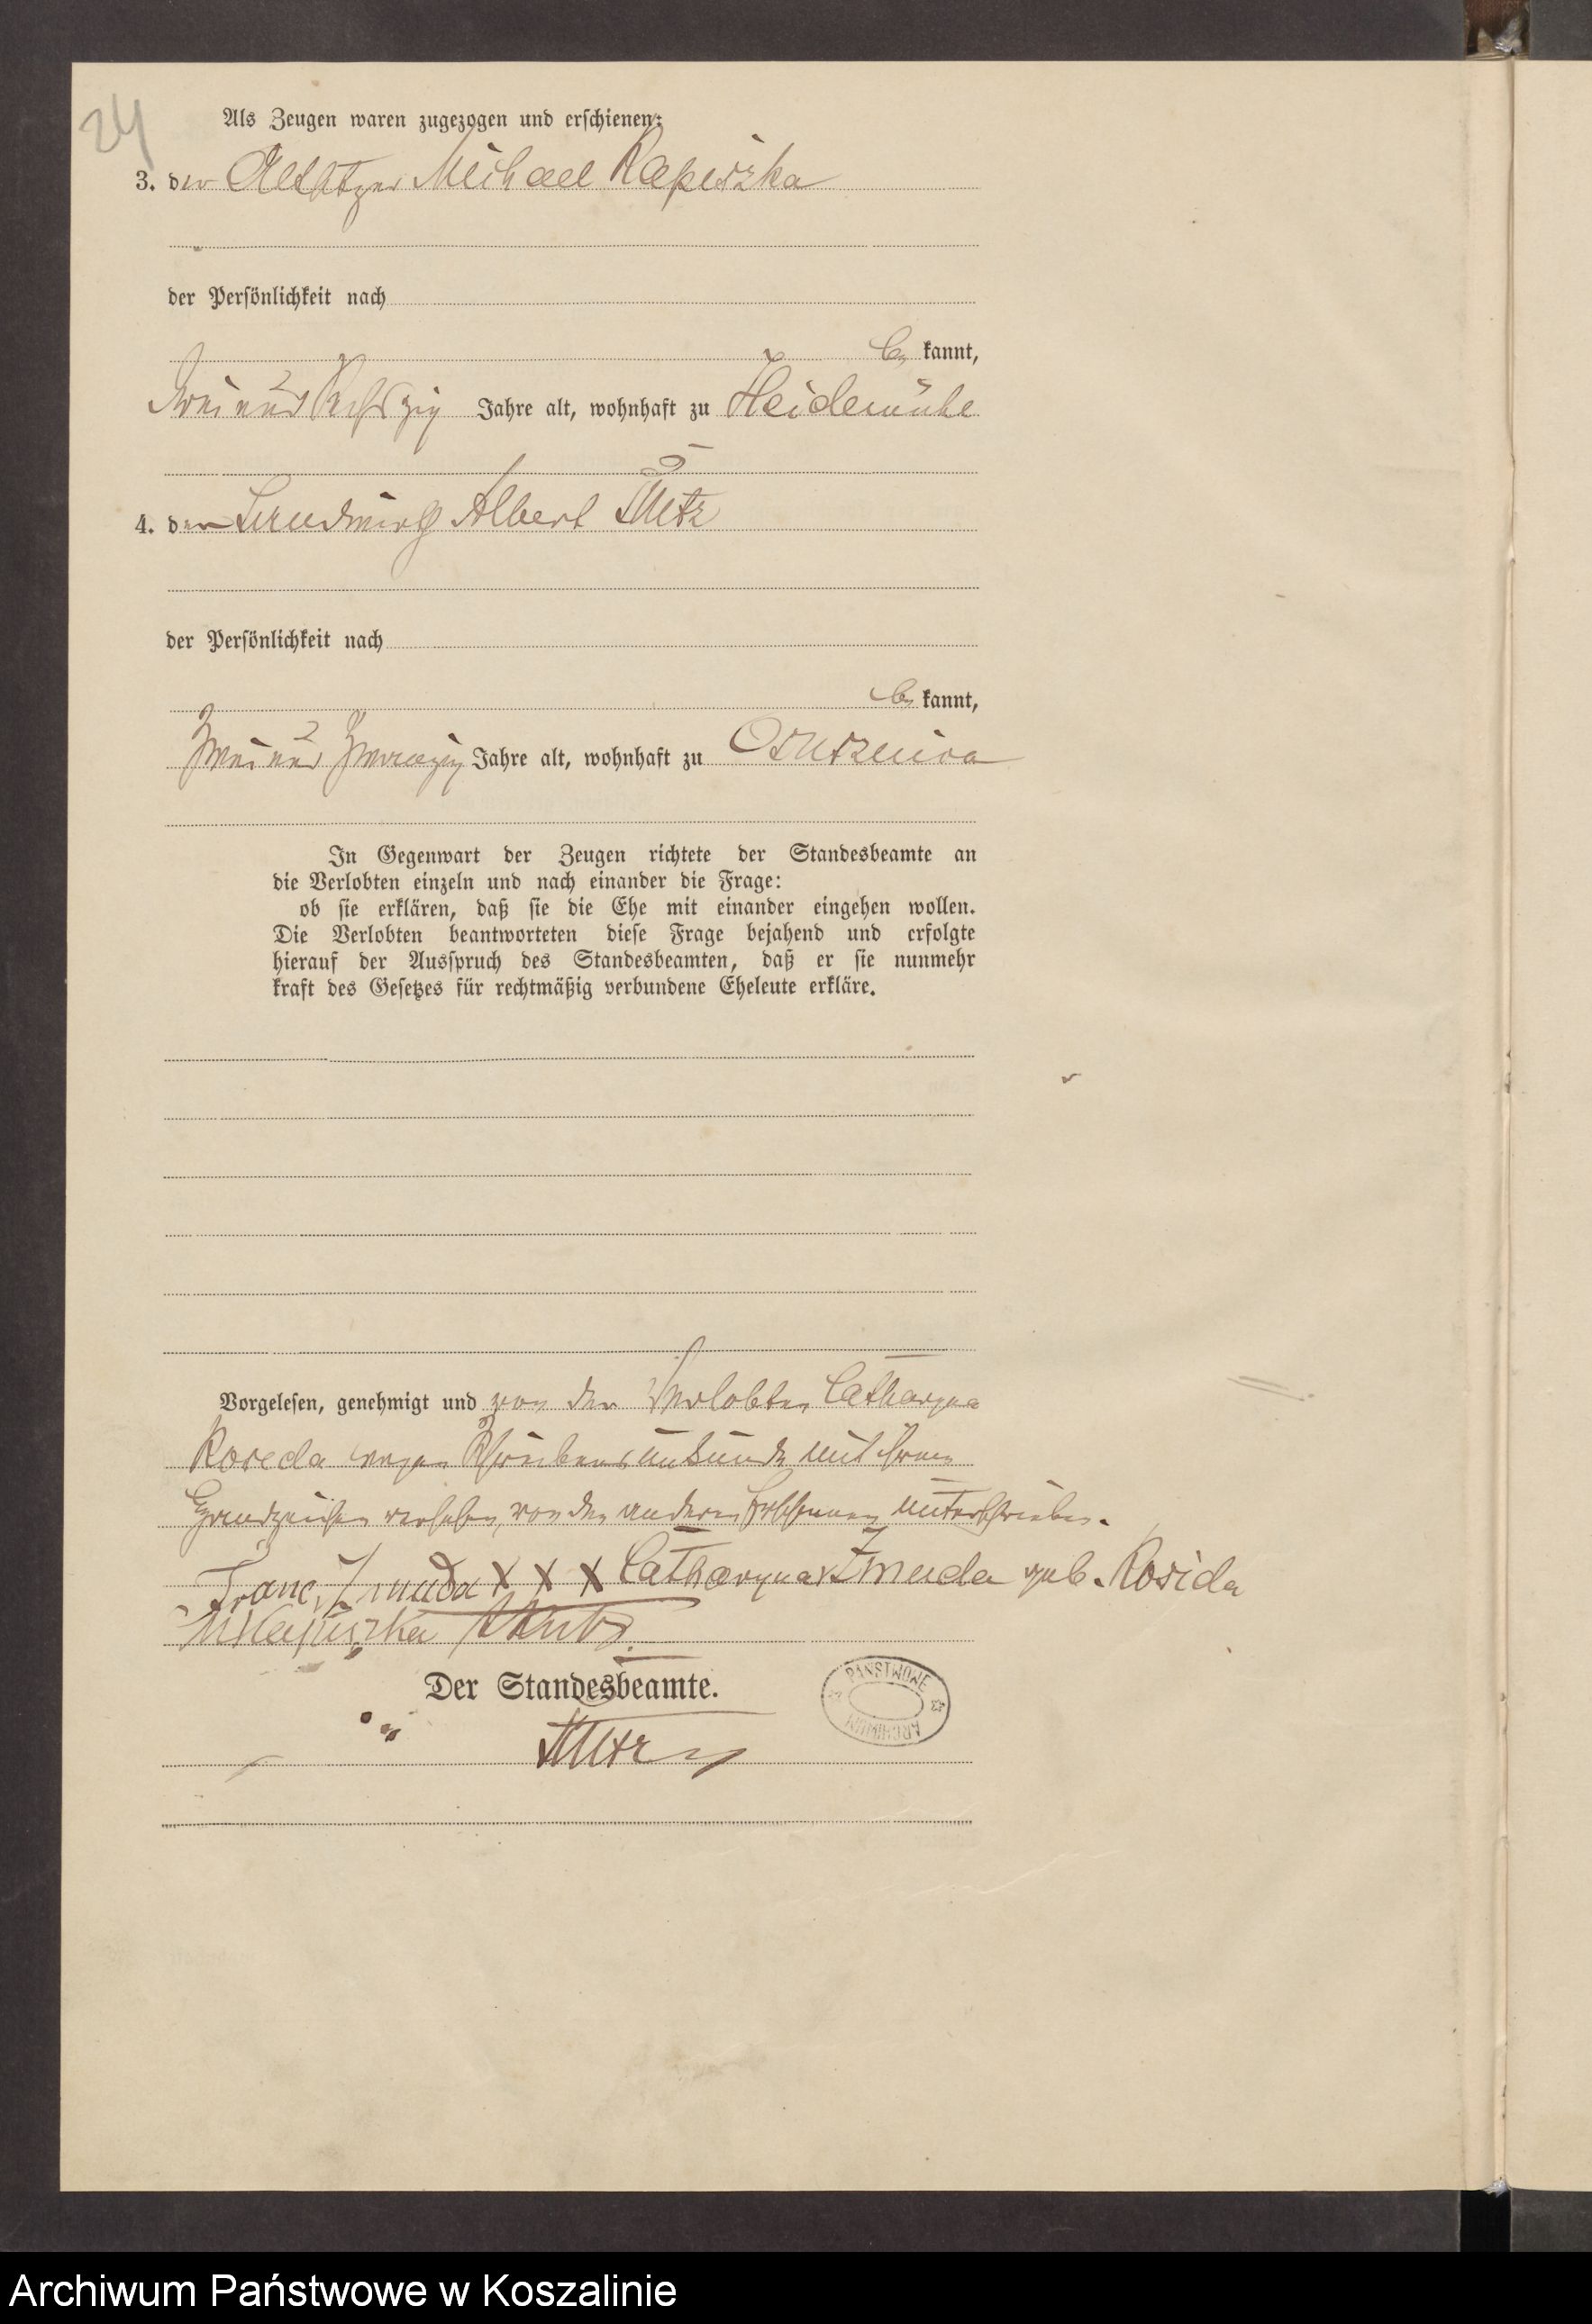 24
Als Zeugen waren zugezogen und erschienen:
3. der Altsitzer Michael Kapiszka
der Persönlichkeit nach
be kannt,
und sechszig Jahre alt, wohnhaft zu Heidemühl
4. der Landwirth Albert
der Persönlichkeit nach
be kannt,
Zwei und Zwanzig Jahre alt, wohnhaft zu
In Gegenwart der Zeugen richtete der Standesbeamte an
die Verlobten einzeln und nach einander die Frage:
ob sie erklären, daß sie die Ehe mit einander eingehen wollen.
Die Verlobten beantworteten diese Frage bejahend und erfolgte
hierauf der Ausspruch des Standesbeamten, daß er sie nunmehr
kraft des Gesetzes für rechtmäßig verbundene Eheleute erkläre.
Vorgelesen, genehmigt und von der Verlobten Catharyna
wegen Schreibensunkunde mit ihrem
Handzeichen versehen, von den anderen Erschienenen unterschrieben.
Franc Zmuda X X X Catharyna Zmuda geb. Rosida
Kapiszka
Der Standesbeamte.
PAŃSTWOWE
ARCHIWUM
Archiwum Państwowe w Koszalinie